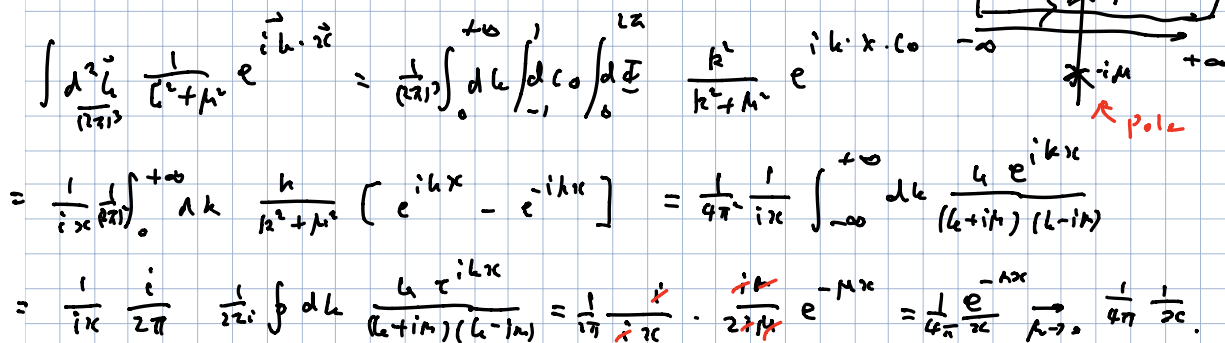 -∞ +∞ -iμ
pole
∫ d³k/(2π)³ 1/(k²+μ²) e^{i k⃗·x⃗} = 1/(2π)³ ∫_0^{+∞} dk ∫_{-1}^{1} dcθ ∫_0^{2π} dΦ k²/(k²+μ²) e^{i k·x·cθ}
= 1/(ix) 1/(2π)² ∫_0^{+∞} dk k/(k²+μ²) [ e^{ikx} - e^{-ikx} ] = 1/(4π²) 1/(ix) ∫_{-∞}^{+∞} dk k e^{ikx}/((k+iμ)(k-iμ))
= 1/(ix) i/(2π) 1/(2πi) ∮ dk k e^{ikx}/((k+iμ)(k-iμ)) = 1/(2π) i/(ix) · iμ/(2iμ) e^{-μx} = 1/(4π) e^{-μx}/x →_{μ→0} 1/(4π) 1/x .